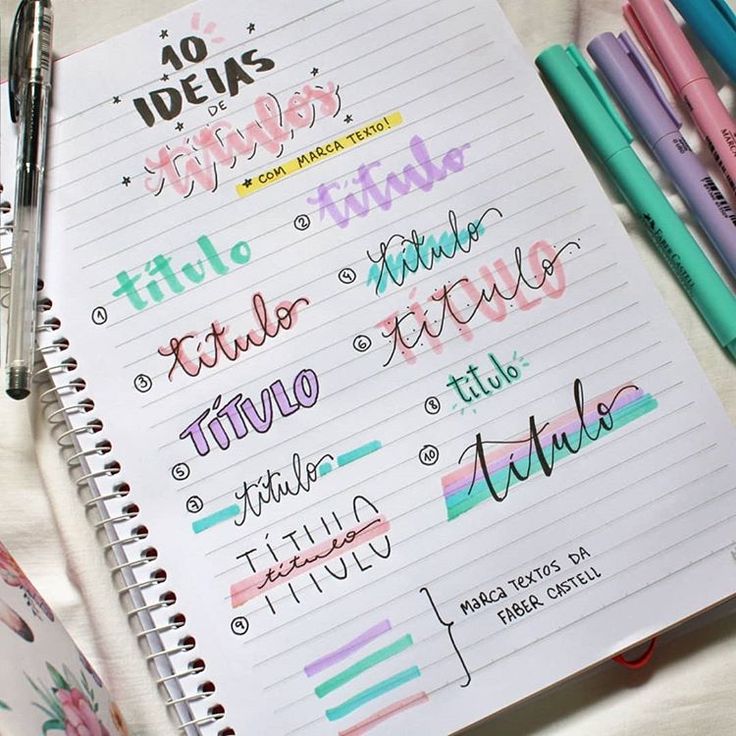 10
IDEIAS
DE
títulos
* COM MARCA TEXTO!
1 título
2 título
3 título
4 título
5 TÍTULO
6 TÍTULO
título
7 título
8 título
9 TÍTULO
título
10 título
MARCA TEXTOS DA
FABER CASTELL
FABER-CASTELL